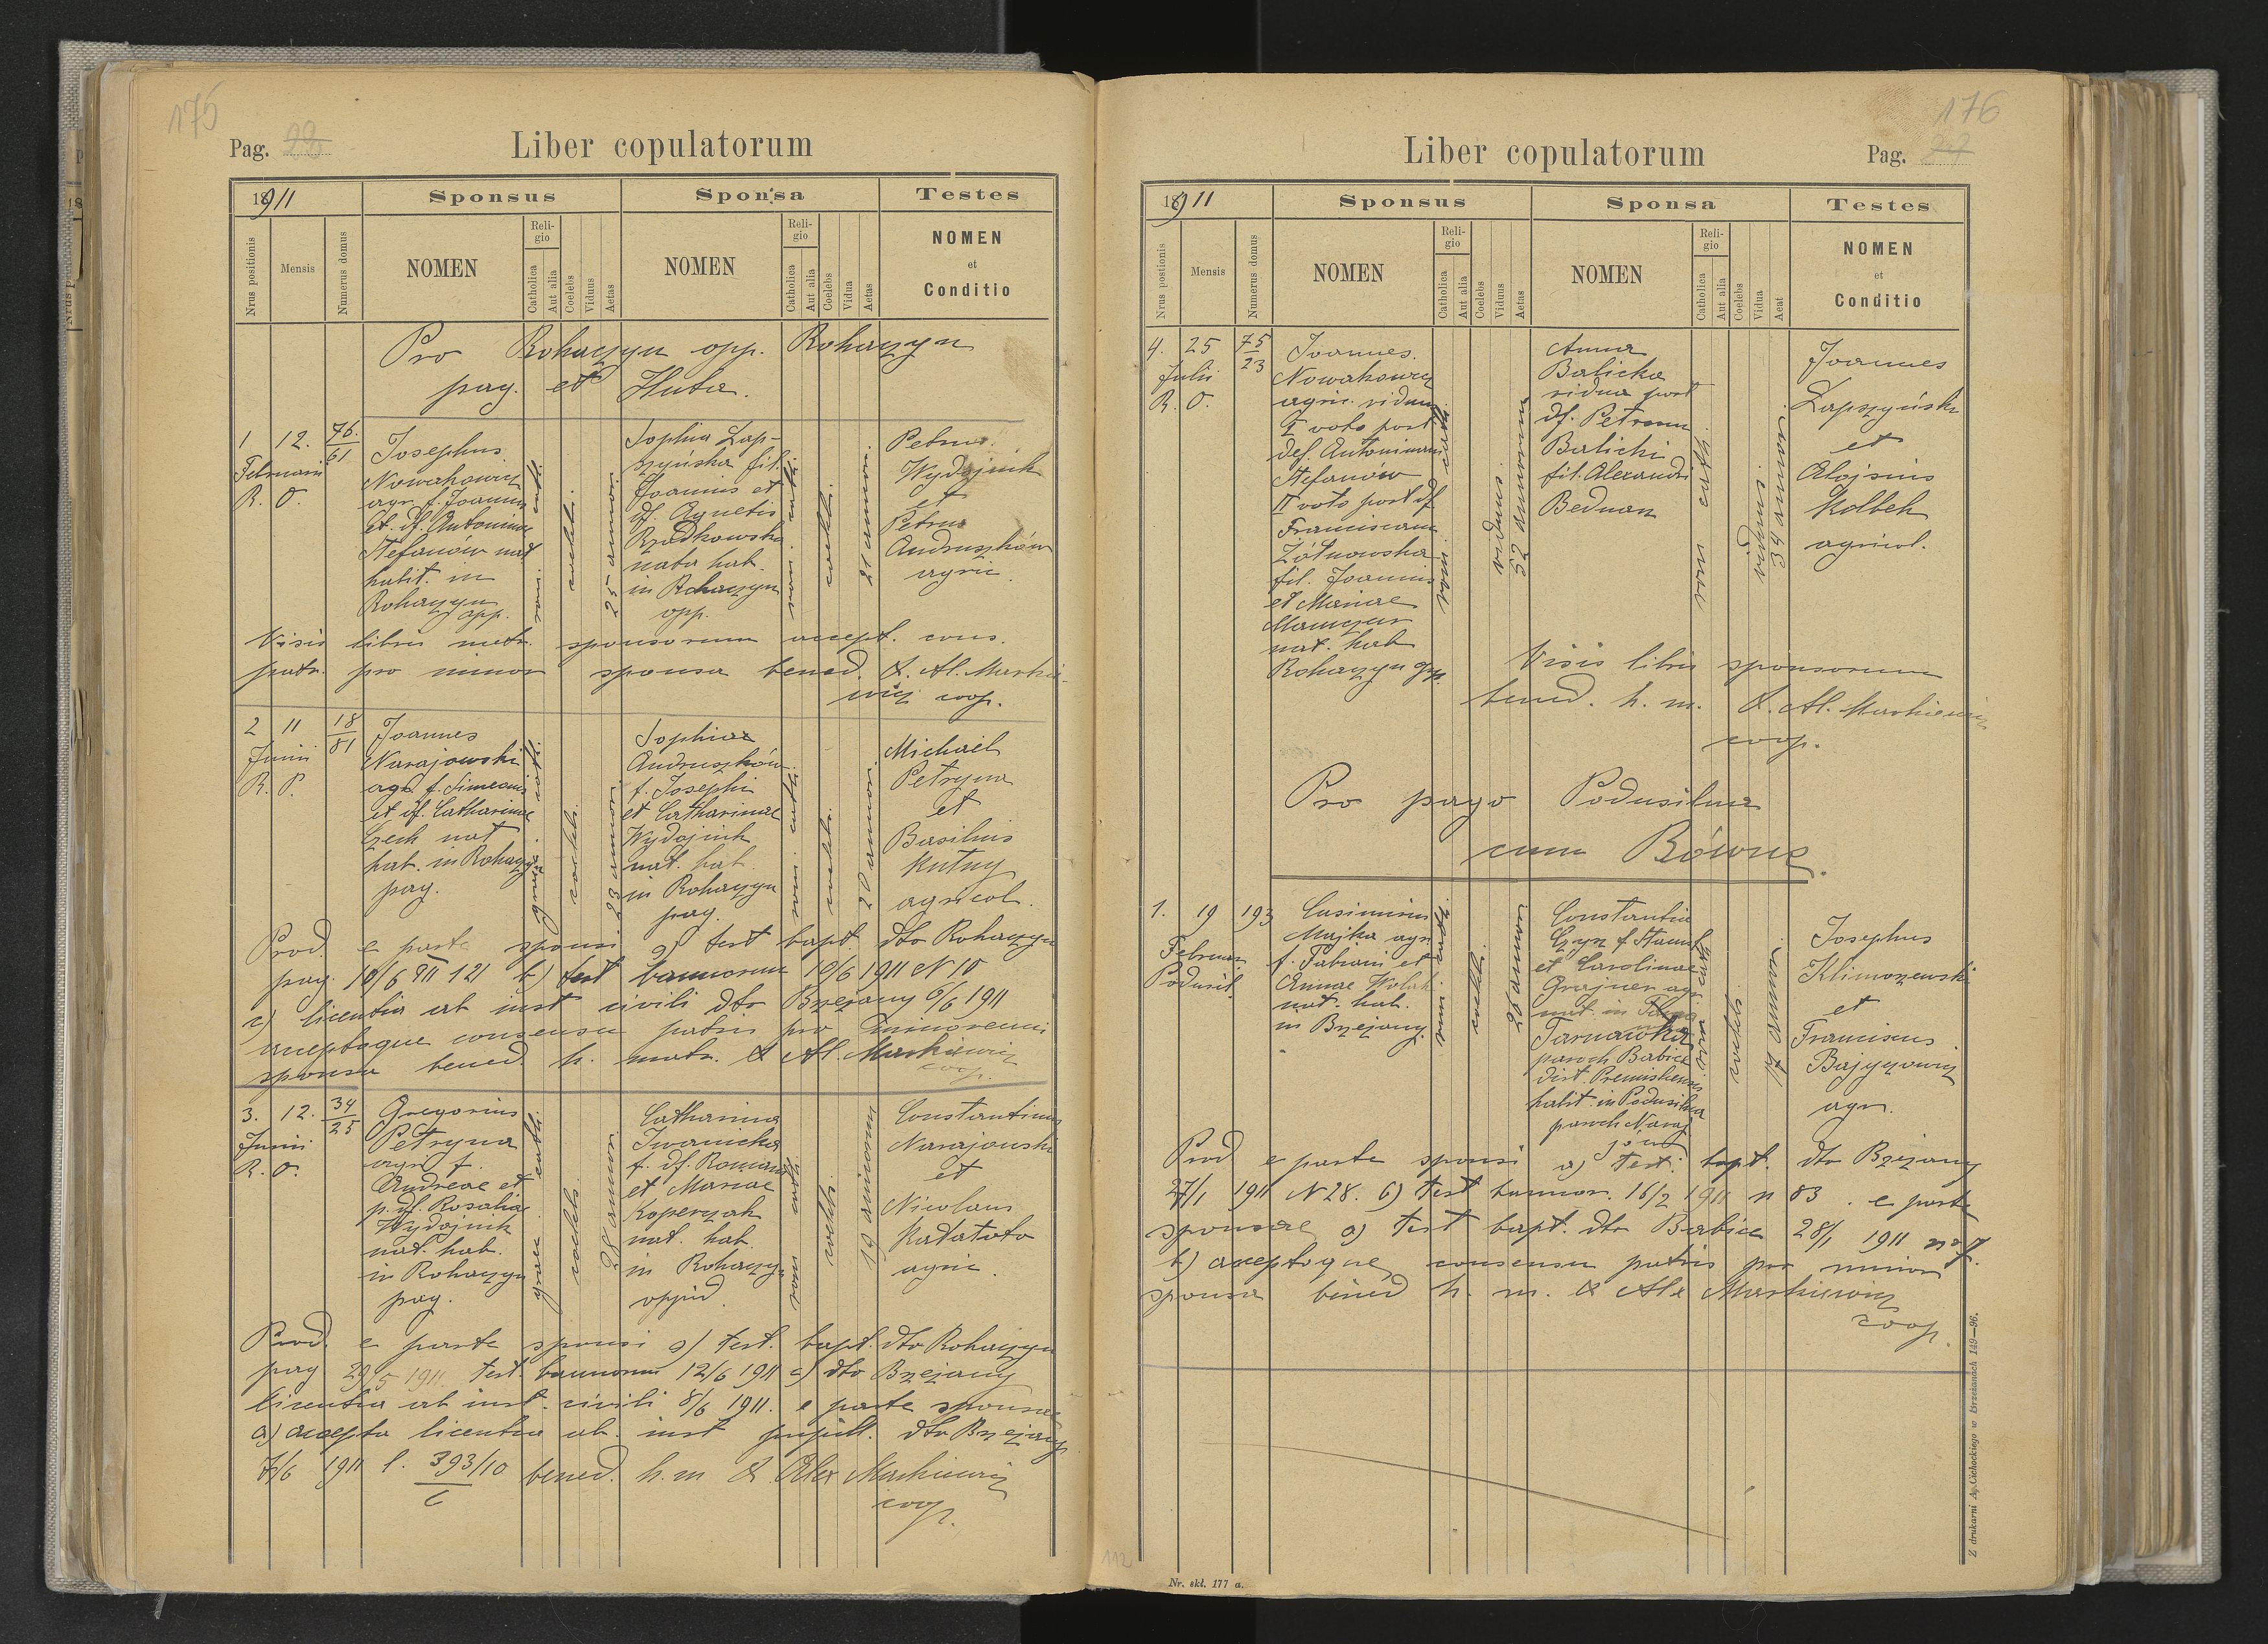 175
Pag. 28
Liber copulatorum
1911
Sponsus
Sponsa
Testes
Nrus positionis
Mensis
Numerus domus
NOMEN
Religio
Catholica
Aut alia
Coelebs
Viduus
Aetas
NOMEN
Religio
Catholica
Aut alia
Coelebs
Vidua
Aetas
NOMEN
et
Conditio
Pro Rohaczyn opp. Rohaczyn
pag. et Huta.
1 12. 76/61
Februarii
R. O.
Josephus
Nowakowicz
agr. f. Joannis
et df. Antoninae
Stefanów nat
habit. in
Rohaczyn
opp.
rom. cath.
coelebs.
25 annorum
Sophia Łap-
szyńska fil.
Joannis et
df. Agnetis
Rządkowska
nata hab.
in Rohaczyn
opp.
rom. cath.
coelebs.
21 annorum.
Petrus
Wydojnik
et
Petrus
Andruszków
agric.
Visis libris metr. sponsorum accept. cons.
patr. pro minor sponsa bened. X. Al. Markie-
wicz coop.
2 11 18/81
Junii
R. P.
Joannes
Narajowski
agr. f. Simeonis
et df. Catharinae
Czech nat
hab. in Rohaczyn
pag.
graec. cath.
coelebs.
23 annorum
Sophia
Andruszków
f. Josephi
et Catharinae
Wydojnik
nat. hab
in Rohaczyn
pag.
rom. cath.
coelebs.
20 annorum
Michael
Petryna
et
Basilius
Kutny
agricol.
Prod. e parte sponsi a) test bapt. dto Rohaczyn
pag. 10/6 911 121 b) test bannorum 10/6 1911 N 10
c) licentia ab inst civili dto Brzeżany 6/6 1911
acceptoque consensu patris pro minorenni
sponsa bened. h. matr. X Al. Markiewicz
coop.
3. 12. 34/25
Junii
R. O.
Gregorius
Petryna
agr. f.
Andreae et
p. df. Rosalia
Wydojnik
nat. hab.
in Rohaczyn
pag.
graec cath.
coelebs.
28 annor.
Catharina
Iwanicka
f. df. Romani
et Mariae
Koperczak
nat. hab.
in Rohaczyn
oppid.
rom cath.
coelebs.
19 annorum
Constantinus
Narajowski
et
Nicolaus
Katatoto
agric.
Prod. e parte sponsi a) test. bapt. dto Rohaczyn
pag 29/5 1911. test. bannorum 12/6 1911 c) dto Brzeżany
licentia ab inst. civili 8/6 1911. e parte sponsae
a) accepta licentia ab. inst pupill. dto Brzeżany
7/6 1911 l. 393/10 bened. h. m X Alex Markiewicz
6
coop.
176
Liber copulatorum
Pag. 27
1911
Sponsus
Sponsa
Testes
Nrus postionis
Mensis
Numerus domus
NOMEN
Religio
Catholica
Aut alia
Coelebs
Viduus
Aetas
NOMEN
Religio
Catholica
Aut alia
Coelebs
Vidua
Aeat
NOMEN
et
Conditio
4. 25 75/23
Julii
R. O.
Joannes.
Nowakowicz
agric. viduus
I voto post
def. Antoninam
Stefanów
II voto post df
Franciscam
Żółnowska
fil. Joannis
et Mariae
nat. hab
Rohaczyn opp.
rom. cath.
viduus.
52 annorum
Anna
Balicka
vidua post
df. Petrum
Balicki
fil. Alexandri
Bednarz
rom cath.
vidua.
34 annorum.
Joannes
Łapszyński
et
Alojsius
Kolbek
agricol.
Visis libris sponsorum
bened. h. m. X. Al. Markiewicz
coop.
Pro pago Podusilna
cum Bówne.
1. 19 193
Februar.
Podusil.
Casimirus
Majka agr
f. Fabiani et
Annae Wolak
nat. hab.
in Brzeżany.
rom cath.
coelebs.
26 annor.
Constantia
Czyz f. Stanisl
et Carolinae
Grajner agr
nat. in
Tarnawka
paroch Babice
dist. Premisliensis
habit. in Podusilna
paroch Naraj
jów
rom. cath.
coelebs.
17 annor.
Josephus
Klimczewski
et
Franciscus
Bajgzowicz
agr.
Prod e parte sponsi a) test. bapt. dto Brzeżany
27/1 1911 N 28. b) test bannor. 16/2 1911 n 83. e parte
sponsae a) test bapt. dto Babice 28/1 1911 n 7.
b) acceptoque consensu patris pro minor
sponsa bened h. m. X Alex Markiewicz
coop.
112
Nr. skł. 177 a.
Z drukarni Ap. Cichockiego w Brzeżanach 149—96.